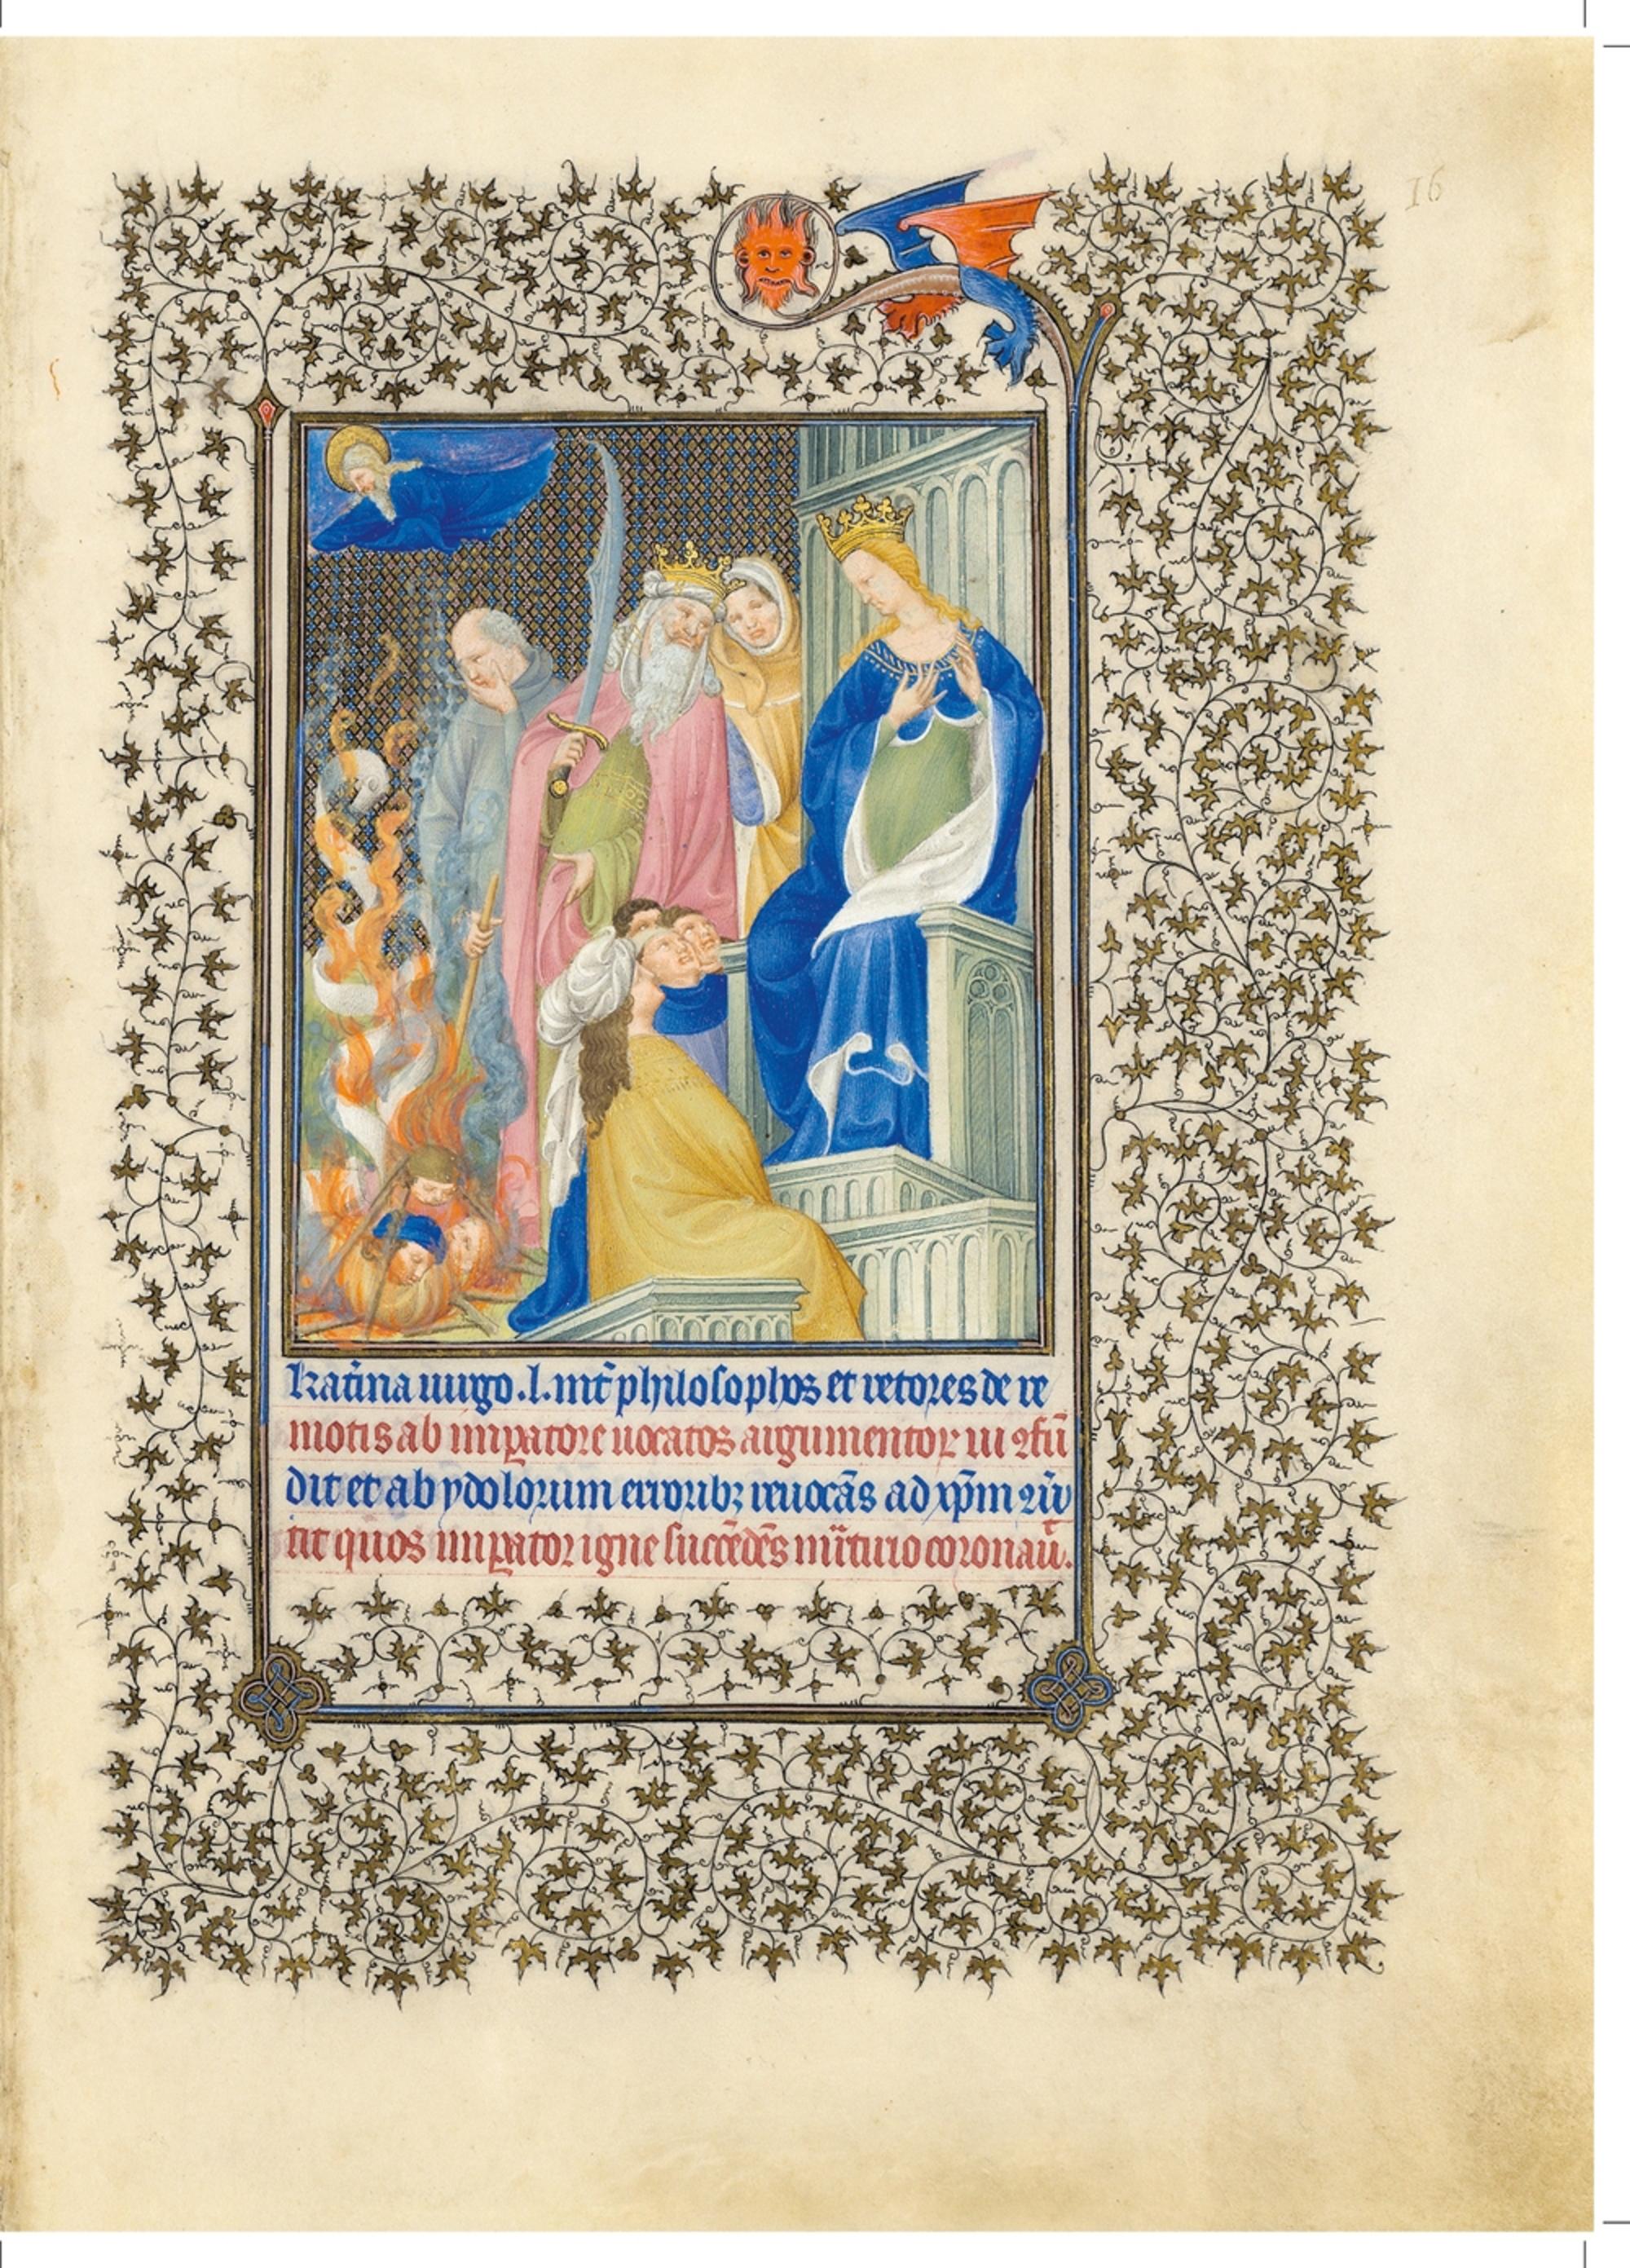 16
Kat̄ina uirgo .l. int̄ philosophos et retores de re
motis ab imꝑatore uocatos argumentoꝝ ui ꝯfū
dit et ab ydolorum erroribꝫ reuocās ad xp̄m ꝯū̄
tit quos imꝑator igne succēdēs mr̄tirio coronau̅.